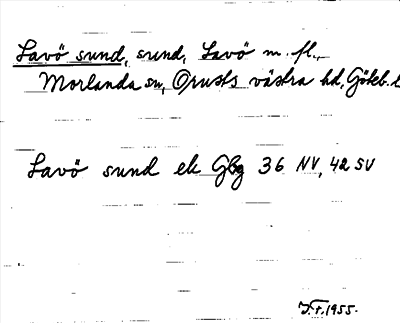 Lavö sund, sund, Lavö m. fl.,
Morlanda sn, Orusts västra hd, Göteb. l
Lavö sund ek Gbg 36 NV, 42 SV
1955.